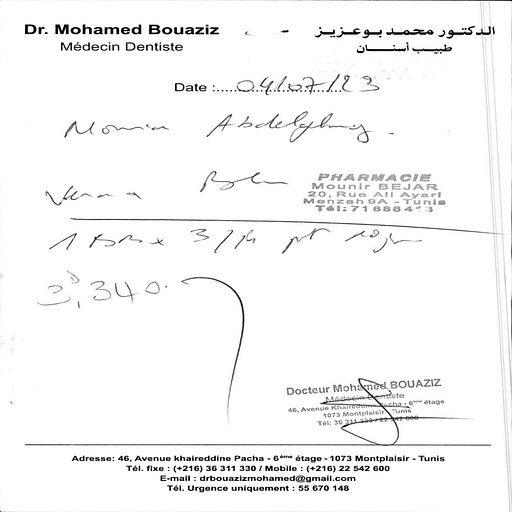 Dr. Mohamed Bouaziz
Médecin Dentiste
الدكتور محمد بوعزيز
طبيب أسنان
Date : 04/07/23
PHARMACIE
Mounir BEJAR
20, Rue Ali Ayari
Menzah 9A - Tunis
Tél: 71 888 413
3/
3,340
Docteur Mohamed BOUAZIZ
Médecin Dentiste
46, Avenue Khaireddine Pacha - 6ème étage
1073 Montplaisir - Tunis
Tél: 36 311 330 / 22 542 600
Adresse: 46, Avenue khaireddine Pacha - 6ème étage - 1073 Montplaisir - Tunis
Tél. fixe : (+216) 36 311 330 / Mobile : (+216) 22 542 600
E-mail : drbouazizmohamed@gmail.com
Tél. Urgence uniquement : 55 670 148